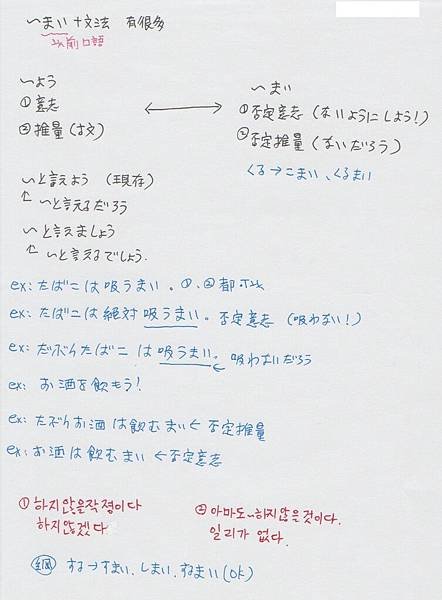 ～まい 十文法 有很多
以前口語
～よう
①意志
②推量（古文）
～まい
①否定意志（ないようにしよう！）
②否定推量（ないだろう）
くる→こまい、くるまい
～と言えよう（現存）
↑～と言えるだろう
～と言えましょう
←～と言えるでしょう.
ex: たばこは吸うまい。①、②都可以
ex: たばこは絶対 吸うまい。否定意志（吸わない！）
ex: だぶんたばこ は吸うまい。← 吸わないだろう
ex: お酒を飲もう！
ex: たぶんお酒は飲むまい← 否定推量
ex: お酒は飲むまい ←否定意志
①하지 않을작정이다
하지않겠다.
②아마도～하지않을것이다.
일리가 없다.
する→すまい、しまい、するまい(OK)